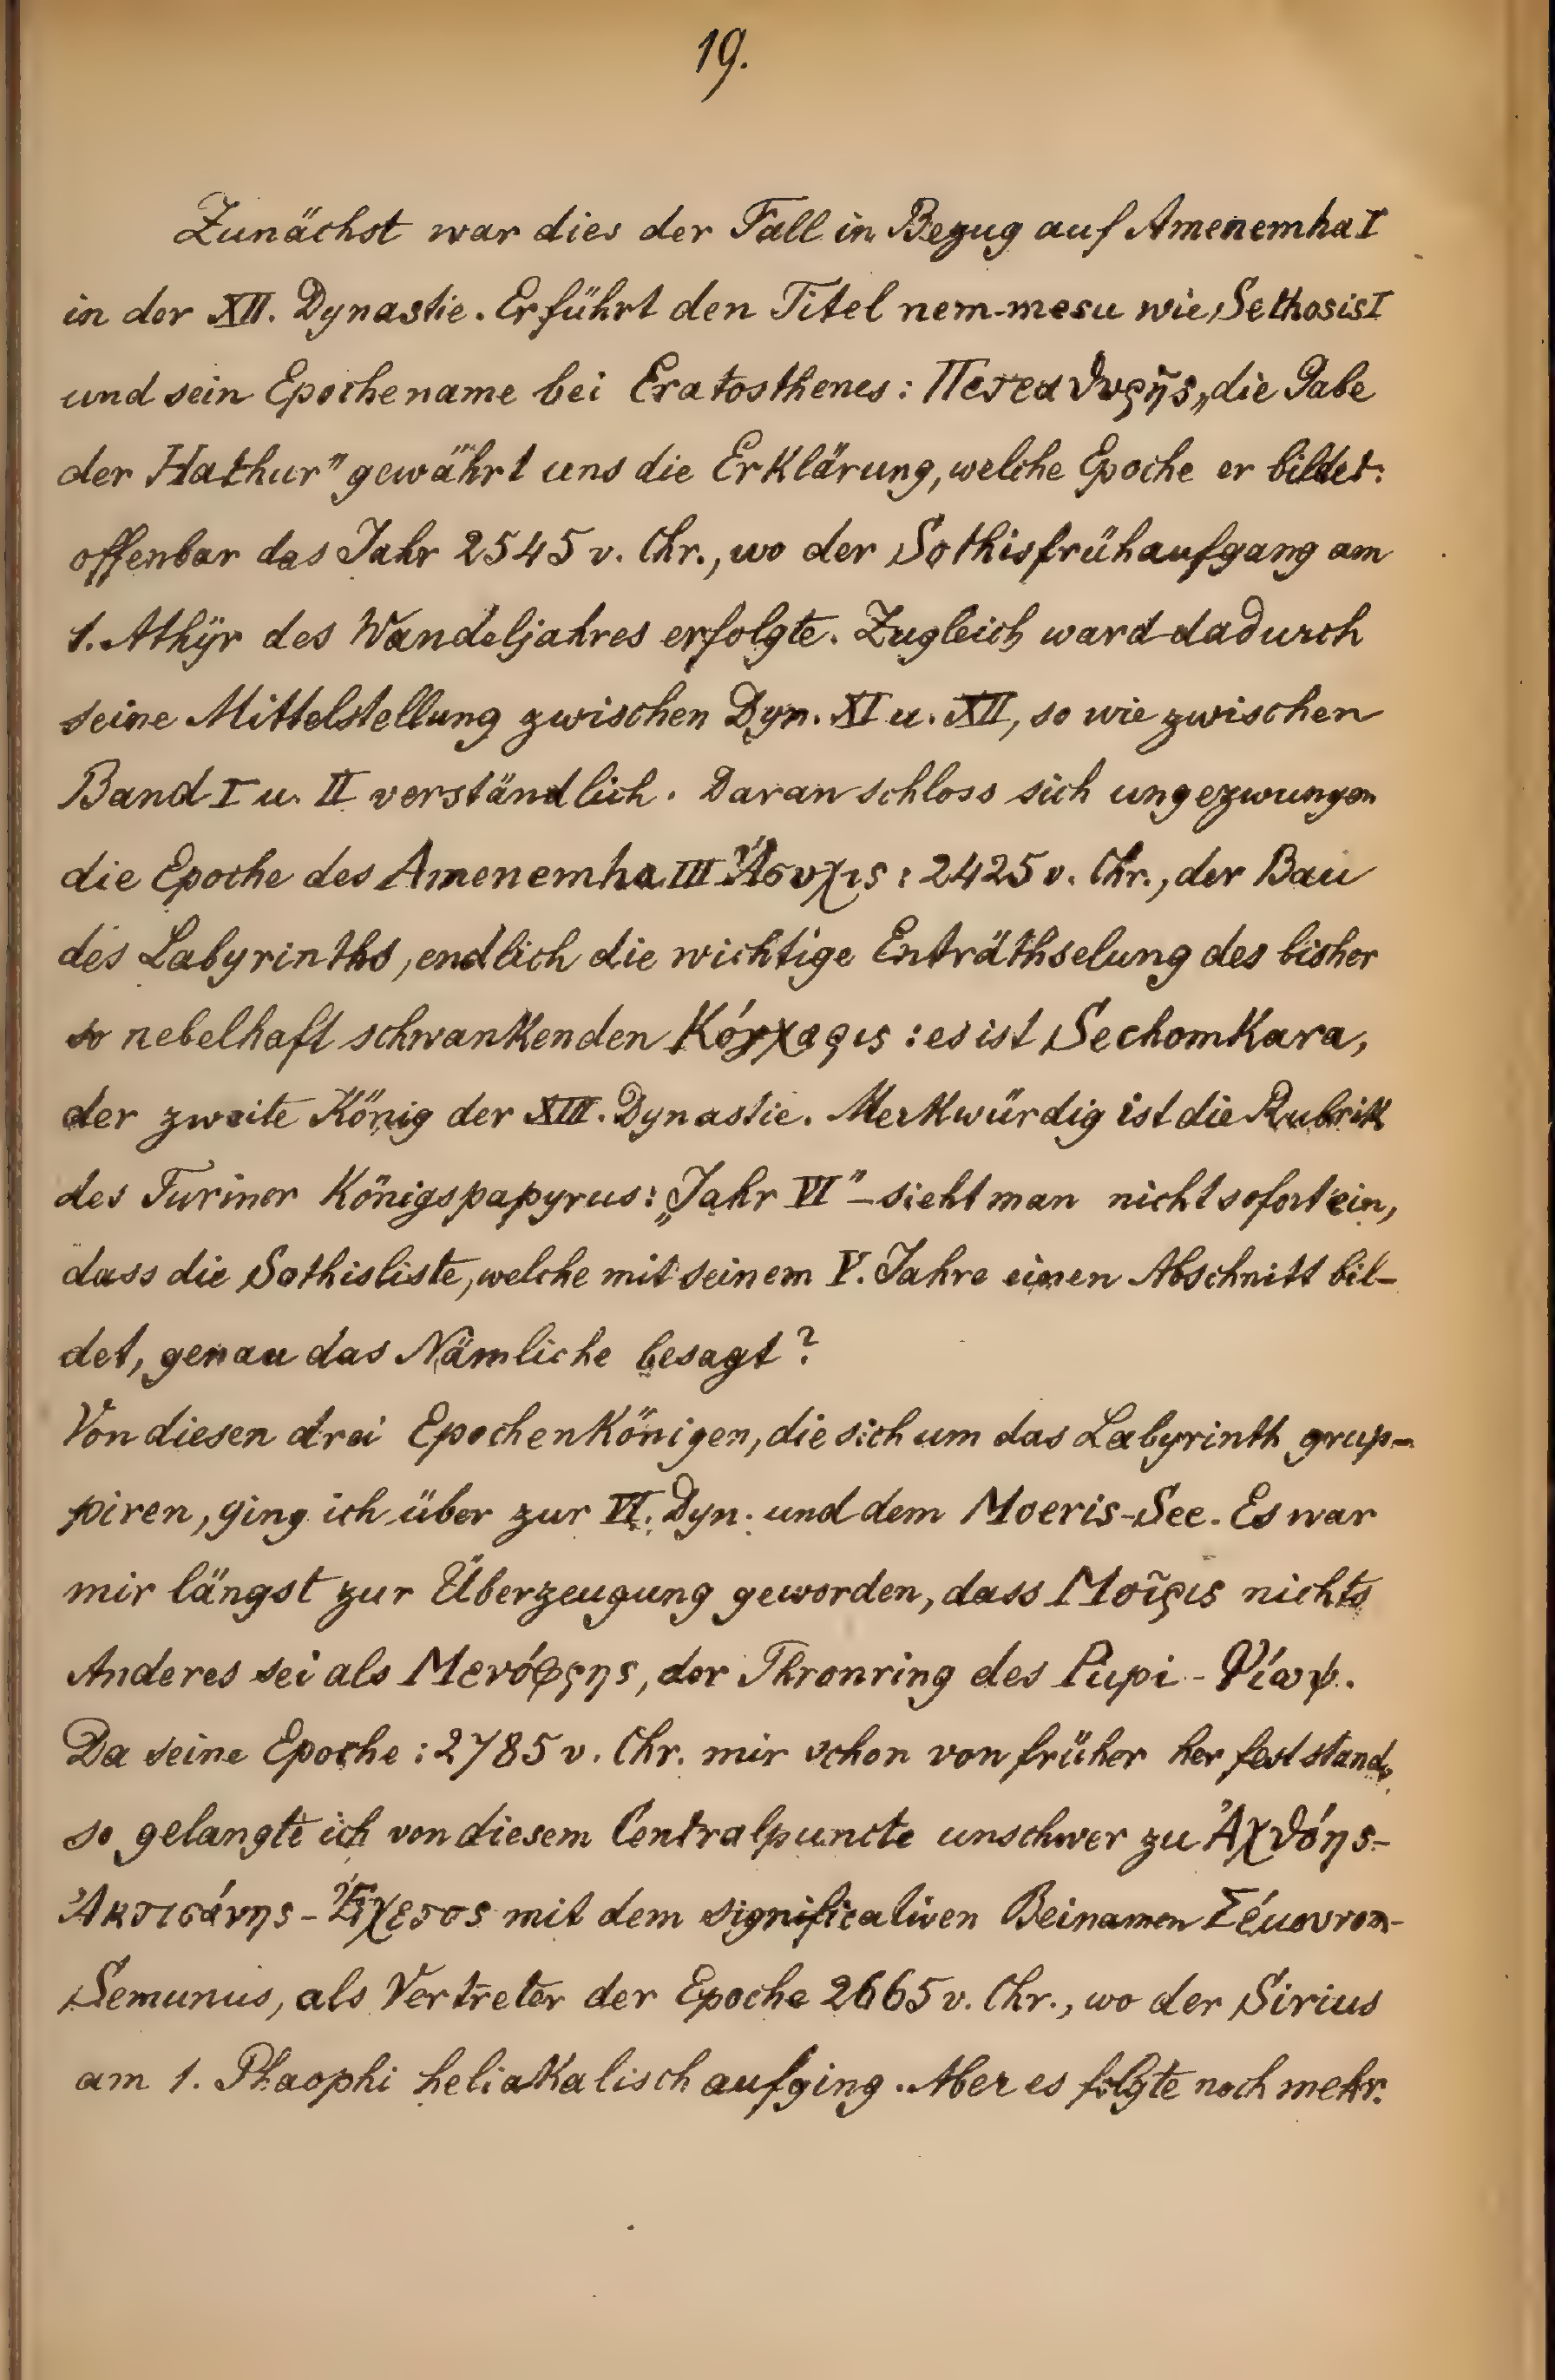 19.
Zunächst war dies der Fall in Bezug auf Amenemha I
in der XII. Dynastie. Er führt den Titel nem-mesu wie Sethosis I
und sein Epochename bei Eratosthenes: Πετεαθυρῆς „die Gabe
der Hathur” gewährt uns die Erklärung, welche Epoche er bildet:
offenbar das Jahr 2545 v. Chr., wo der Sothisfrühaufgang am
1. Athÿr des Wandeljahres erfolgte. Zugleich ward dadurch
seine Mittelstellung zwischen Dyn. XI u. XII, so wie zwischen
Band I u. II verständlich. Daran schloss sich ungezwungen
die Epoche des Amenemha III Ἄσυχις: 2425 v. Chr., der Bau
des Labyrinths, endlich die wichtige Enträthselung des bisher
so nebelhaft schwankenden Κόγχαρις: es ist Sechomkara,
der zweite König der XIII. Dynastie. Merkwürdig ist die Rubrik
des Turiner Königspapyrus: „Jahr VI” – sieht man nicht sofort ein,
dass die Sothisliste, welche mit seinem V. Jahre einen Abschnitt bil-
det, genau das Nämliche besagt?
Von diesen drei Epochenkönigen, die sich um das Labyrinth grup-
piren, ging ich über zur VI. Dyn. und dem Moeris-See. Es war
mir längst zur Überzeugung geworden, dass Μοῖρις nichts
Anderes sei als Μενόφρης, der Thronring des Pupi - Φίωψ.
Da seine Epoche: 2785 v. Chr. mir schon von früher her feststand,
so gelangte ich von diesem Centralpuncte unschwer zu Ἀχθόης-
Ἀκτισάνης - Ἔχετος mit dem significativen Beinamen
Semunis, als Vertreter der Epoche 2665 v. Chr., wo der Sirius
am 1. Phaophi heliakalisch aufging. Aber es folgte noch mehr.